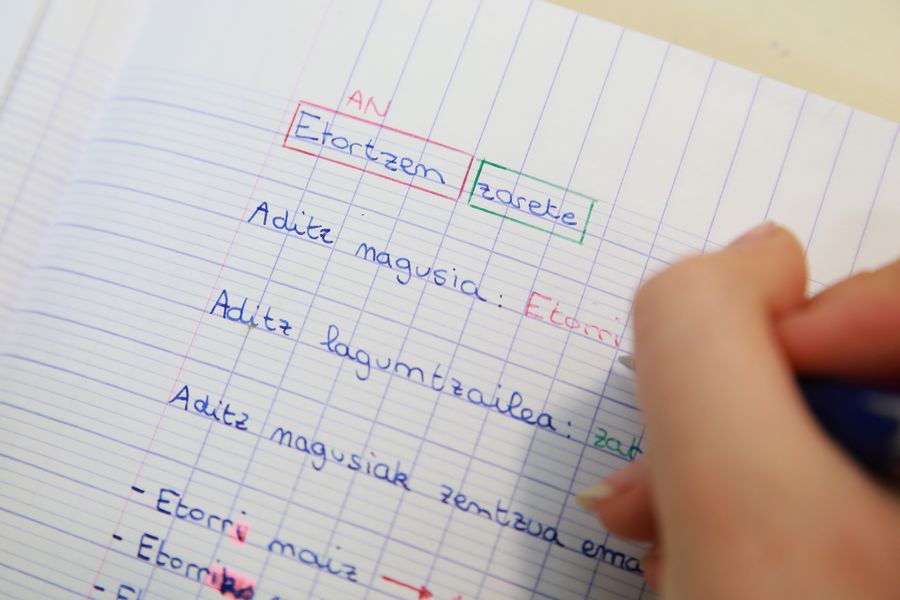 AN
Etortzen zarete
Aditz nagusia: Etorri
Aditz laguntzailea: zar
Aditz nagusiak zentzua ema
- Etorri naiz →
- Etorriko